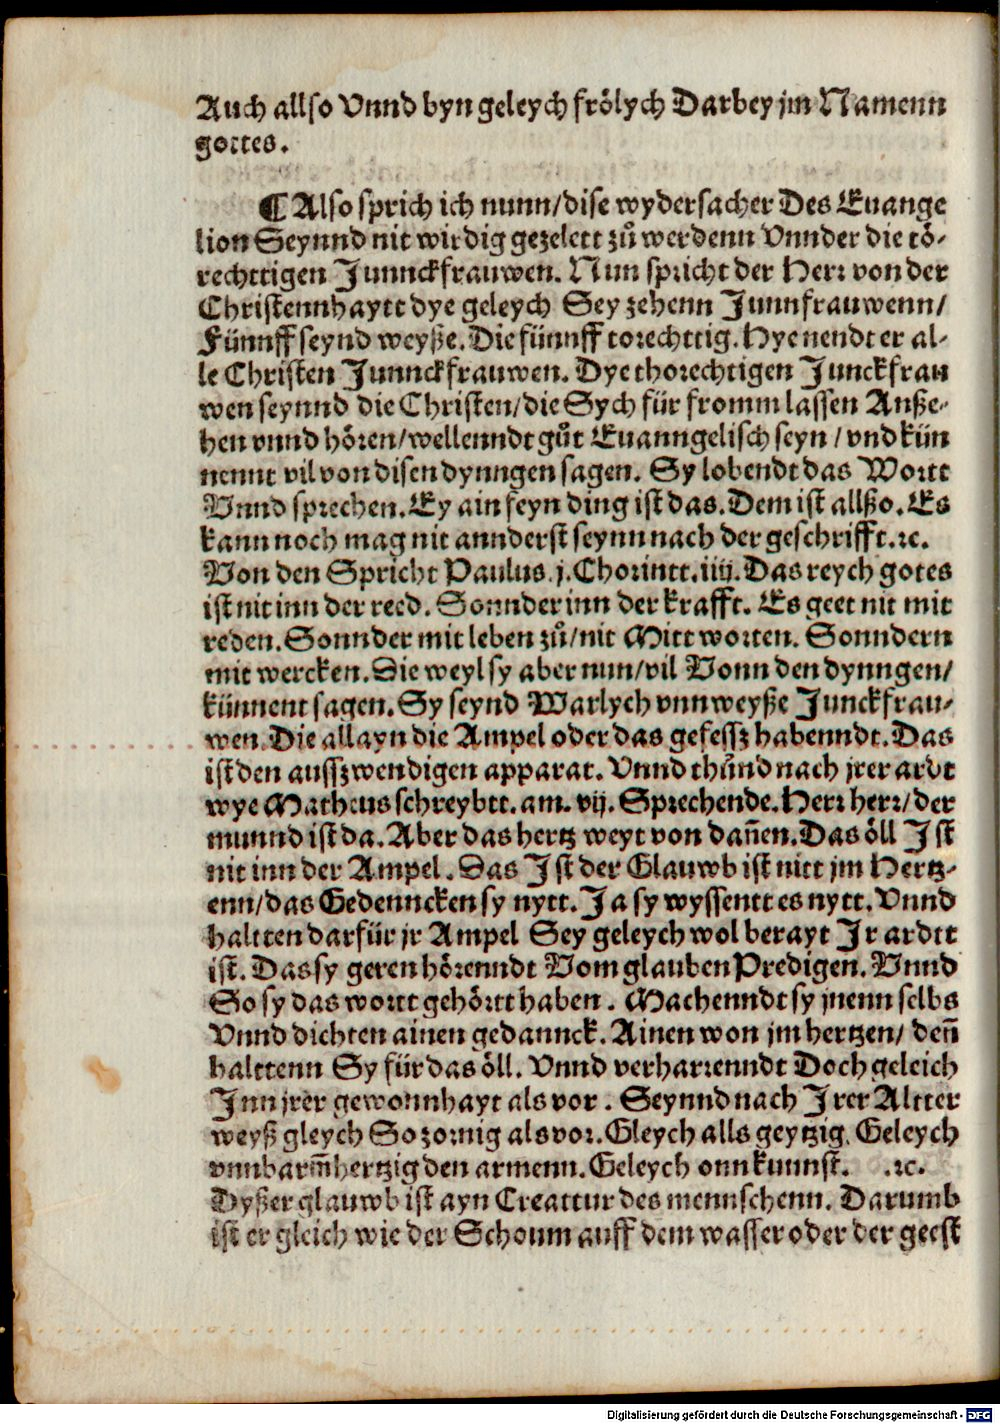 Auch allso Vnnd byn geleych frölych Darbey jm Namenn
gottes.
¶ Also sprich ich nunn/dise wydersacher Des Euange
lion Seynnd nit wirdig gezelett zů werdenn Vnnder die tö-
rechttigen Junnckfrauwen. Nun spricht der Herr von der
Christennhaytt dye geleych Sey zehenn Junnfrauwenn/
Fünnff seynd weyße. Die fünnff torechttig. Hye nendt er al-
le Christen Junnckfrauwen. Dye thorechtigen Junckfrau
wen seynnd die Christen/die Sych für fromm lassen Anße-
hen vnnd hören/wellenndt gůt Euanngelisch seyn/vnd kün
nennt vil von disen dynngen sagen. Sy lobendt das Wortt
Vnnd sprechen. Ey ain feyn ding ist das. Dem ist allßo. Es
kann noch mag nit annderst seynn nach der geschrifft.ꝛc.
Von den Spricht Paulus.j.Chorintt.iiij. Das reych gotes
ist nit inn der reed. Sonnder inn der krafft. Es geet nit mit
reden. Sonnder mit leben zů/nit Mitt worten. Sonndern
mit wercken. Die weyl sy aber nun/vil Vonn den dynngen/
künnent sagen. Sy seynd Warlych vnnweyße Junckfrau-
wen. Die allayn die Ampel oder das gefessz habenndt. Das
ist den aussz wendigen apparat. Vnnd thůnd nach jrer ardt
wye Matheus schreybtt. am. vij. Sprechende. Herr herr/der
munnd ist da. Aber das hertz weyt von dañen. Das öll Jst
nit inn der Ampel. Das Jst der Glauwb ist nitt jm Hertz-
enn/das Gedenncken sy nytt. Ja sy wyssentt es nytt. Vnnd
haltten darfür jr Ampel Sey geleych wol berayt Jr ardtt
ist. Das sy geren hörenndt Vom glauben Predigen. Vnnd
So sy das wortt gehörtt haben. Machenndt sy jnenn selbs
Vnnd dichten ainen gedannck. Ainen won jm hertzen/ deñ
halttenn Sy für das öll. Vnnd verharrenndt Doch geleich
Jnn jrer gewonnhayt als vor. Seynnd nach Jrer Altter
weyß gleych So zornig als vor. Gleych alls geytzig. Geleych
vnnbarm̃hertzig den armenn. Geleych onn kunnst. .ꝛc.
Dyßer glauwb ist ayn Creattur des mennschenn. Darumb
ist er gleich wie der Schoum auff dem wasser oder der geest
Digitalisierung gefördert durch die Deutsche Forschungsgemeinschaft - DFG